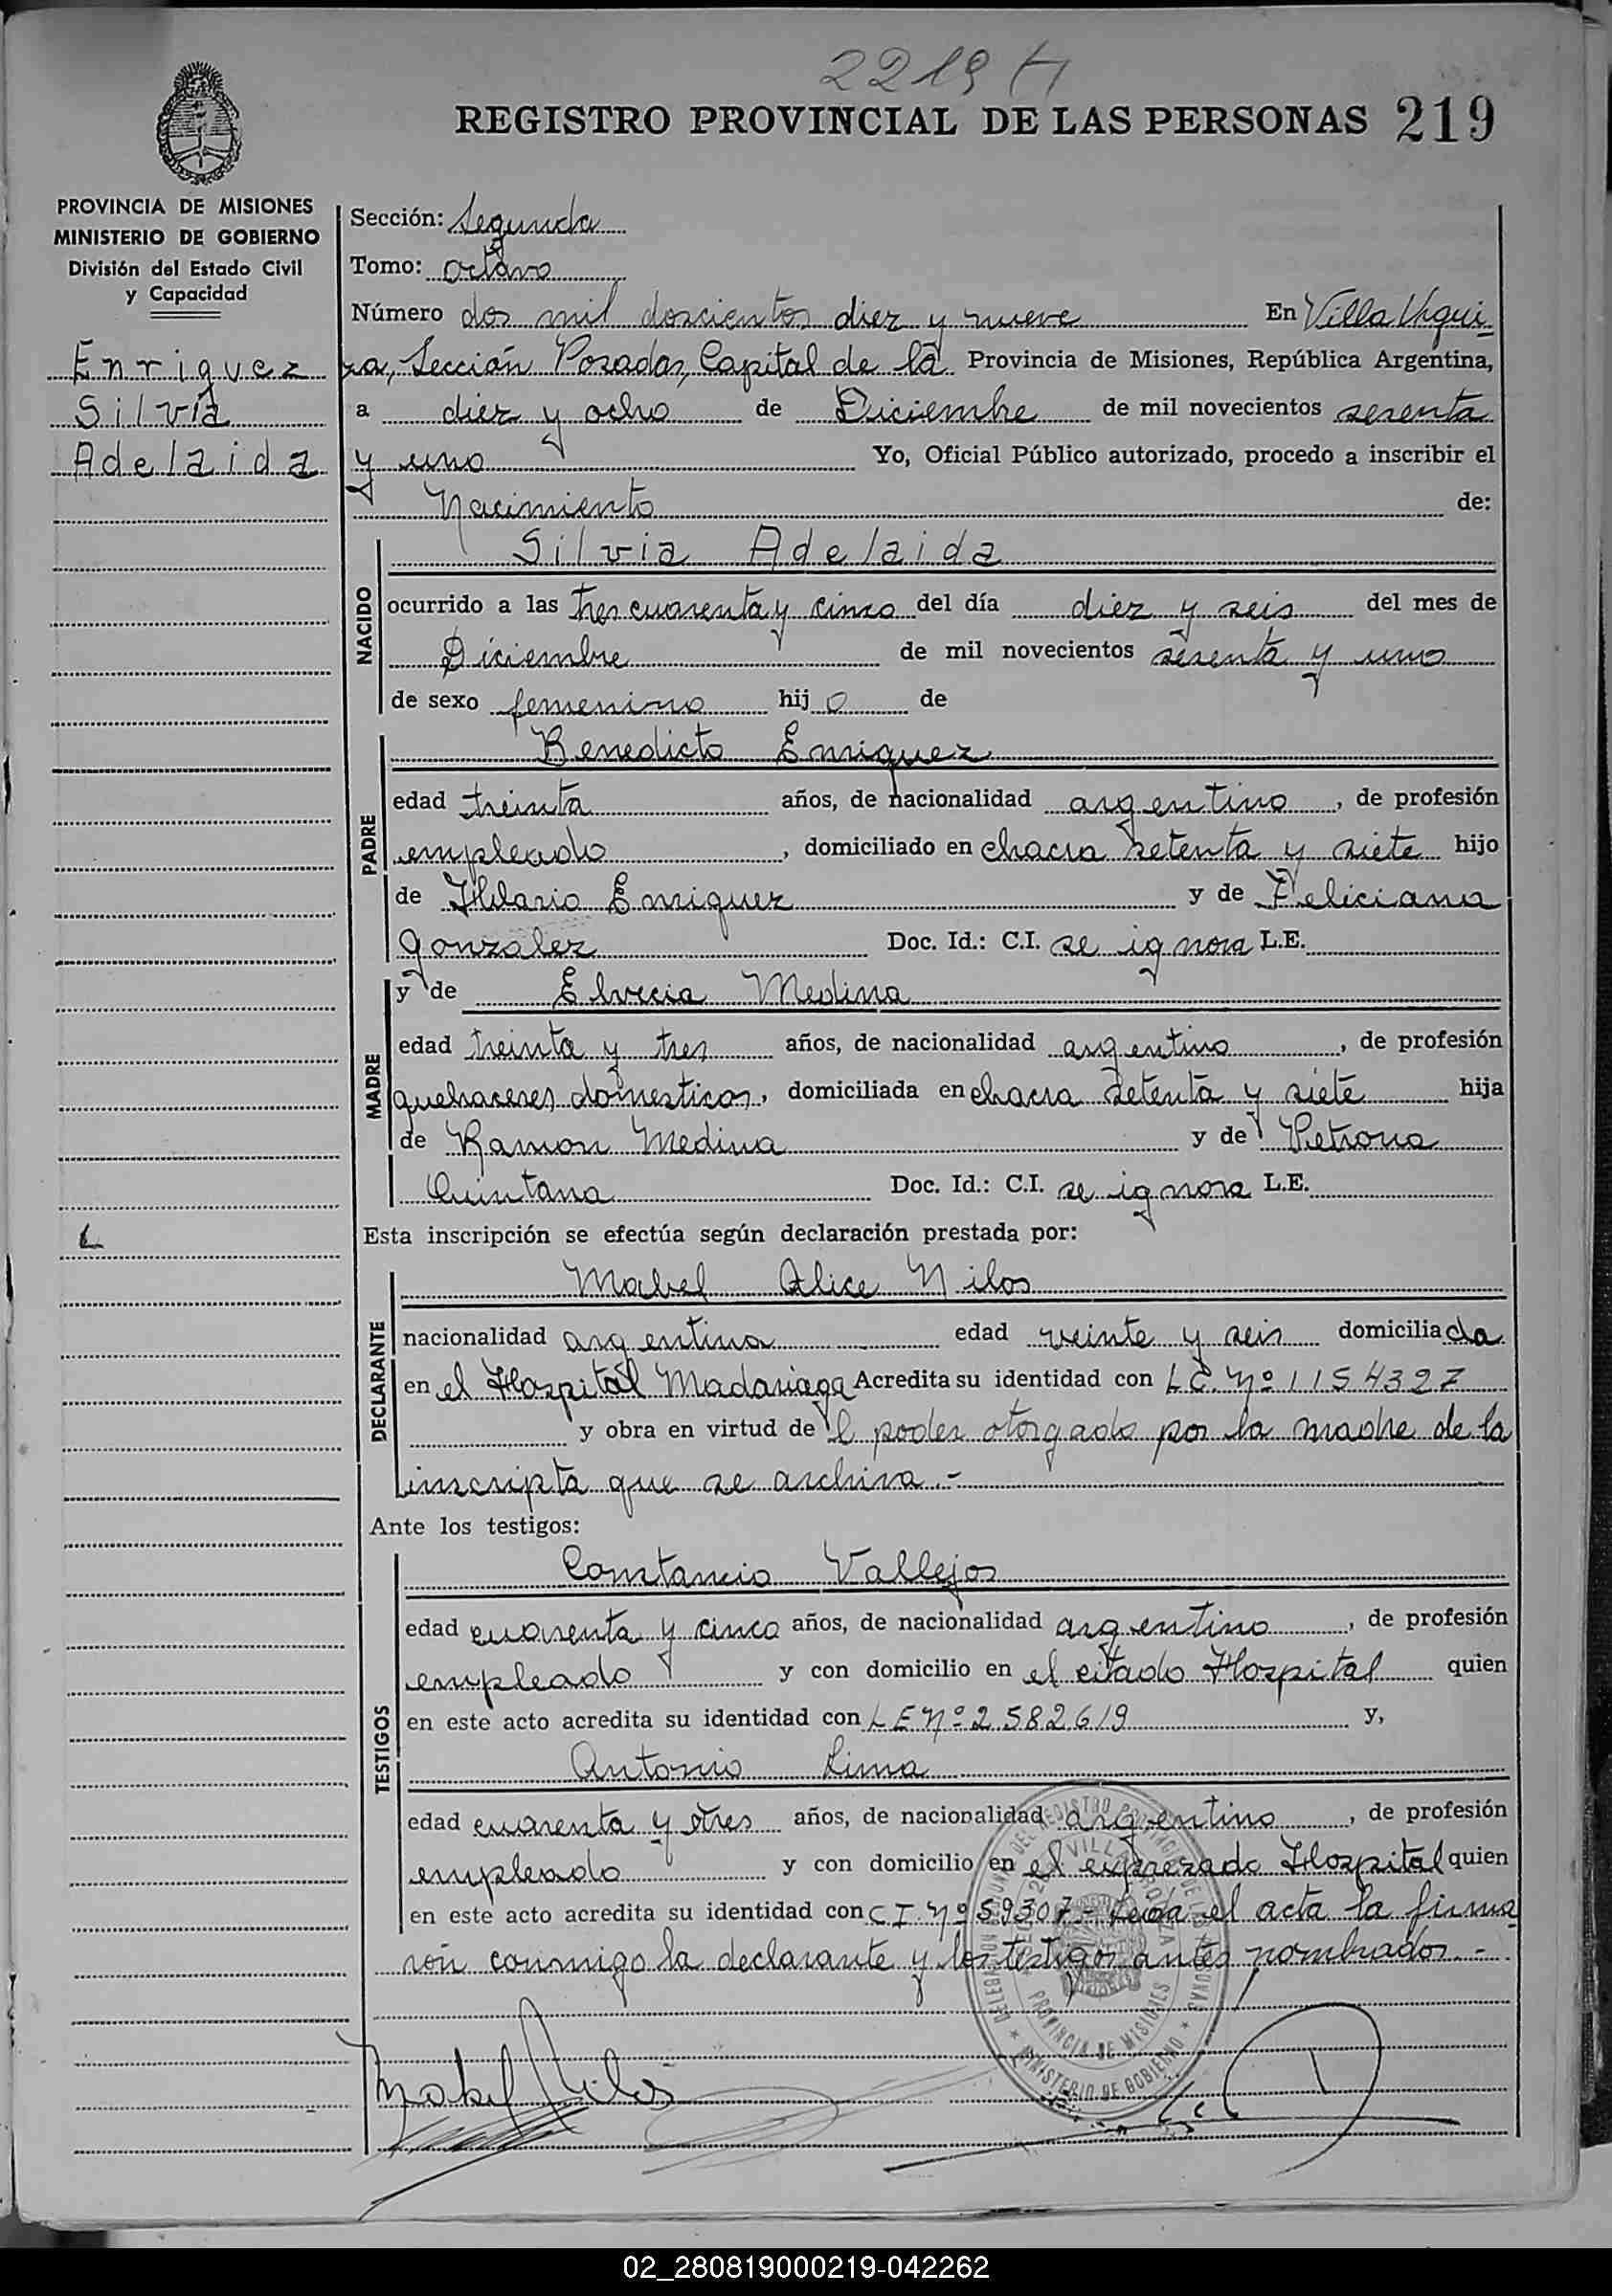 2219
REGISTRO PROVINCIAL DE LAS PERSONAS 219
PROVINCIA DE MISIONES
MINISTERIO DE GOBIERNO
División del Estado Civil
y Capacidad
Enriquez
Silvia
Adelaida
Sección: Segunda
Tomo: octavo
Número dos mil doscientos diez y nueve En Villa Urqui-
za, Sección Posadas, Capital de la Provincia de Misiones, República Argentina,
a diez y ocho de Diciembre de mil novecientos sesenta
y uno Yo, Oficial Público autorizado, procedo a inscribir el
Nacimiento de:
NACIDO
Silvia Adelaida
ocurrido a las tres cuarenta y cinco del día diez y seis del mes de
Diciembre de mil novecientos sesenta y uno
de sexo femenino hijo de
PADRE
Benedicto Enriquez
edad treinta años, de nacionalidad argentino, de profesión
empleado, domiciliado en chacra setenta y siete hijo
de Hilario Enriquez y de Feliciana
Gonzalez Doc. Id.: C.I. se ignora L.E.
MADRE
y de Elvecia Medina
edad treinta y tres años, de nacionalidad argentino, de profesión
quehaceres domesticos, domiciliada en chacra setenta y siete hija
de Ramon Medina y de Petrona
Quintana Doc. Id.: C.I. se ignora L.E.
Esta inscripción se efectúa según declaración prestada por:
DECLARANTE
Mabel Alice Nilos
nacionalidad argentina edad veinte y seis domiciliada
en el Hospital Madariaga Acredita su identidad con L.C. Nº 1154327
y obra en virtud del poder otorgado por la madre de la
inscripta que se archiva.-
Ante los testigos:
TESTIGOS
Constancio Vallejos
edad cuarenta y cinco años, de nacionalidad argentino, de profesión
empleado y con domicilio en el citado Hospital quien
en este acto acredita su identidad con LE Nº 2582619 y,
Antonio Lima
edad cuarenta y tres años, de nacionalidad argentino, de profesión
empleado y con domicilio en el expresado Hospital quien
en este acto acredita su identidad con C I. Nº 59307- Leida el acta la firma
ron conmigo la declarante y los testigos antes nombrados.-
PROVINCIA DE MISIONES
MINISTERIO DE GOBIERNO
Mabel Nilos
02_280819000219-042262